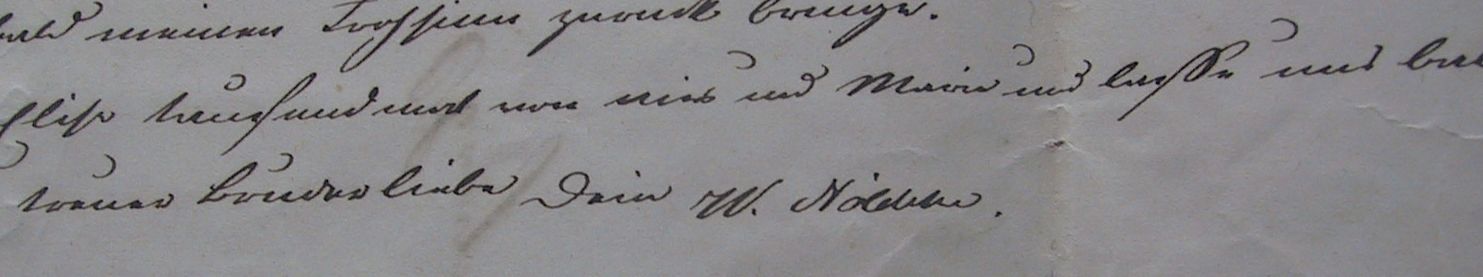 bald meinen Frohsinn zurück bringe.
Elise tausendmal von mir und Marie und lasse uns bal
treuer Bruderliebe Dein W. Nöldeke.